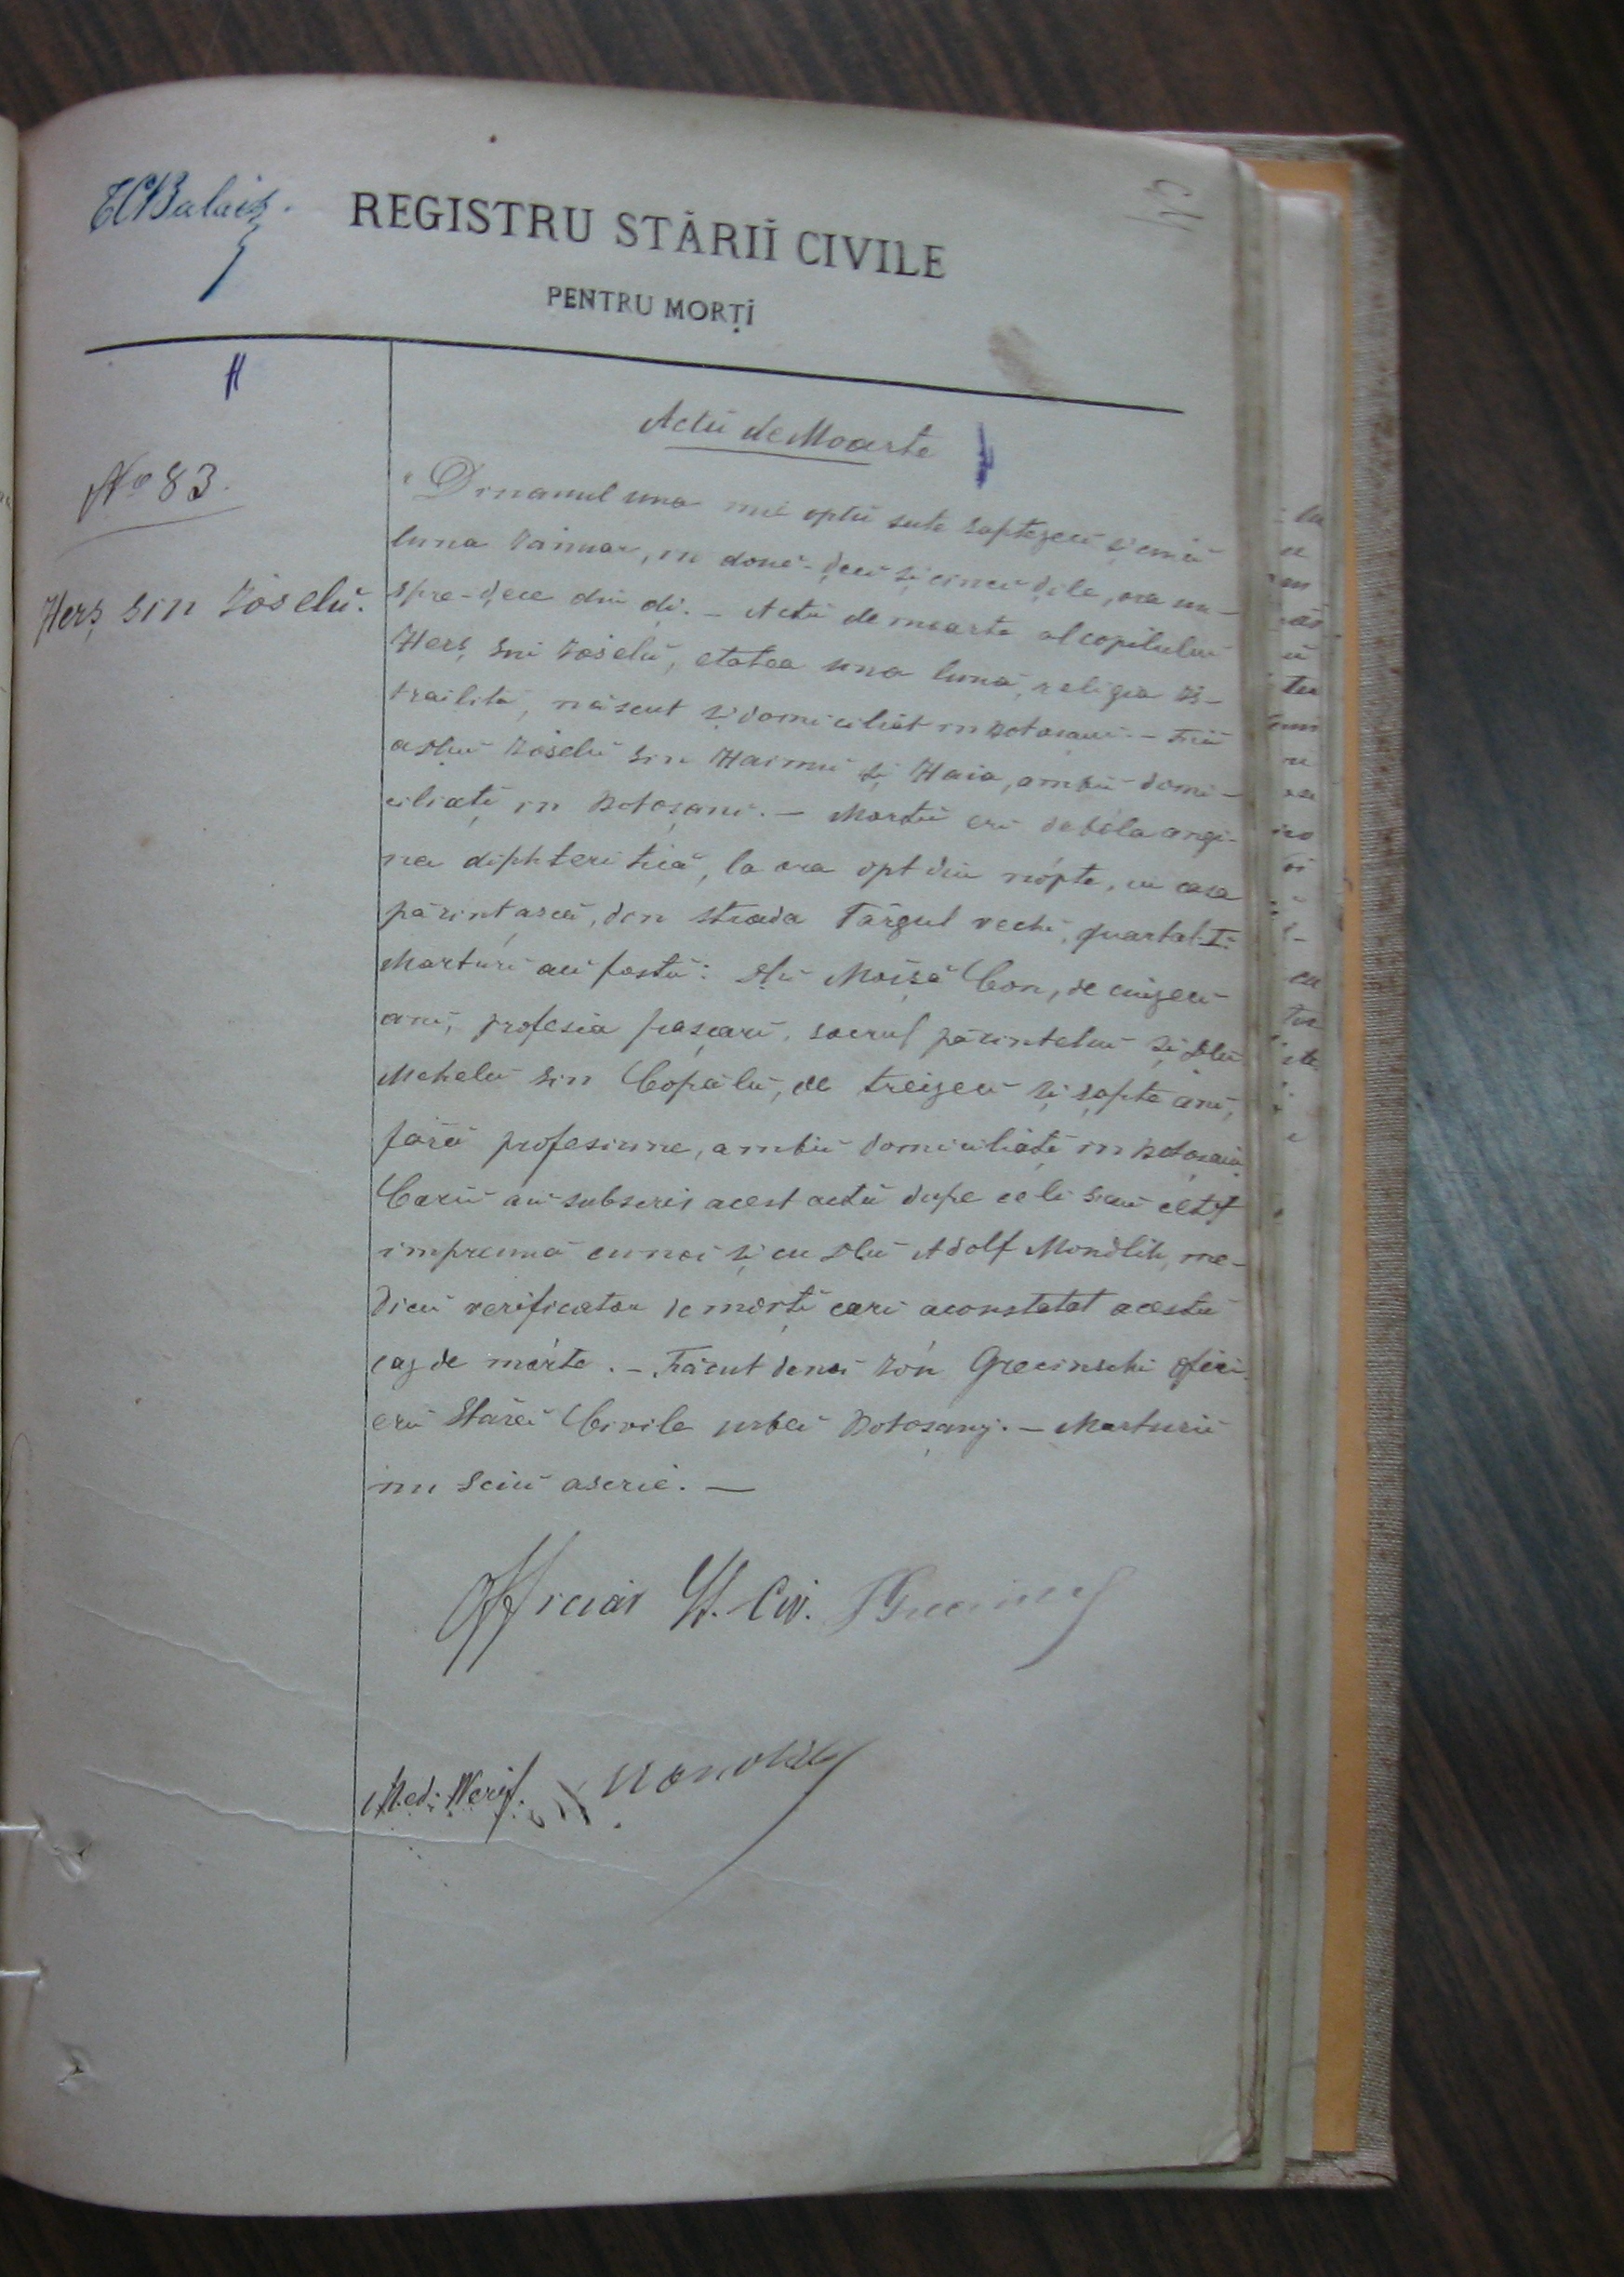 REGISTRU STĂRIĬ CIVILE
PENTRU MORȚĬ
Actŭ de Moarte
No 83.
Herș sin Ioselŭ.
Din anul una mie optŭ sute șaptezeci și cinci
luna Ianuar, in doue-deci și cinci dile, ora un-
spre-dece din di. — Actŭ de moarte al copilului
Herș sin Ioselŭ, etatea una luna, religia Is-
trailita, născut și domiciliat in Botoșani. — Fiiŭ
a Dlui Ioselŭ sin Haimu și Haia, ambii domi-
ciliați in Botoșani. — Mortŭ eri de bóla angi-
na diphteritică, la ora opt din nópte, in casa
părintască, din strada Târgul vechi, quartal I:
Marturi au fostŭ: Dlŭ Moișă Con, de cinzeci
ani, profesia pascarŭ, socrul părintelui și Dlŭ
Mehelŭ sin Copălŭ, de treizeci și șapte ani,
fără profesiune, ambii domiciliați in Botoșani
Carii au subscris acest actŭ dupe ce li sau cetit
impreună cu noi și cu Dlŭ Adolf Mondlih, me-
dicŭ verificator de morți cari a constatat acestŭ
caz de mórte. — Făcut de noi Ión Grecinschi ofici-
erŭ Stărei Civile urbei Botoșanj. — Marturii
nu sciŭ a scrie. —
Officiar St. Civ.
Med. Verif.